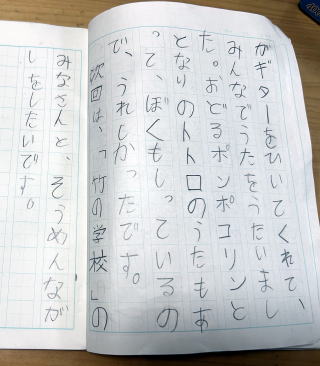 がギターをひいてくれて、
みんなでうたをうたいまし
た。おどるポンポコリンと
となりのトトロのうたもす
って、ぼくもしっているの
で、うれしかったです。
次回は、「竹の学校」の
みなさんと、そうめんなが
しをしたいです。